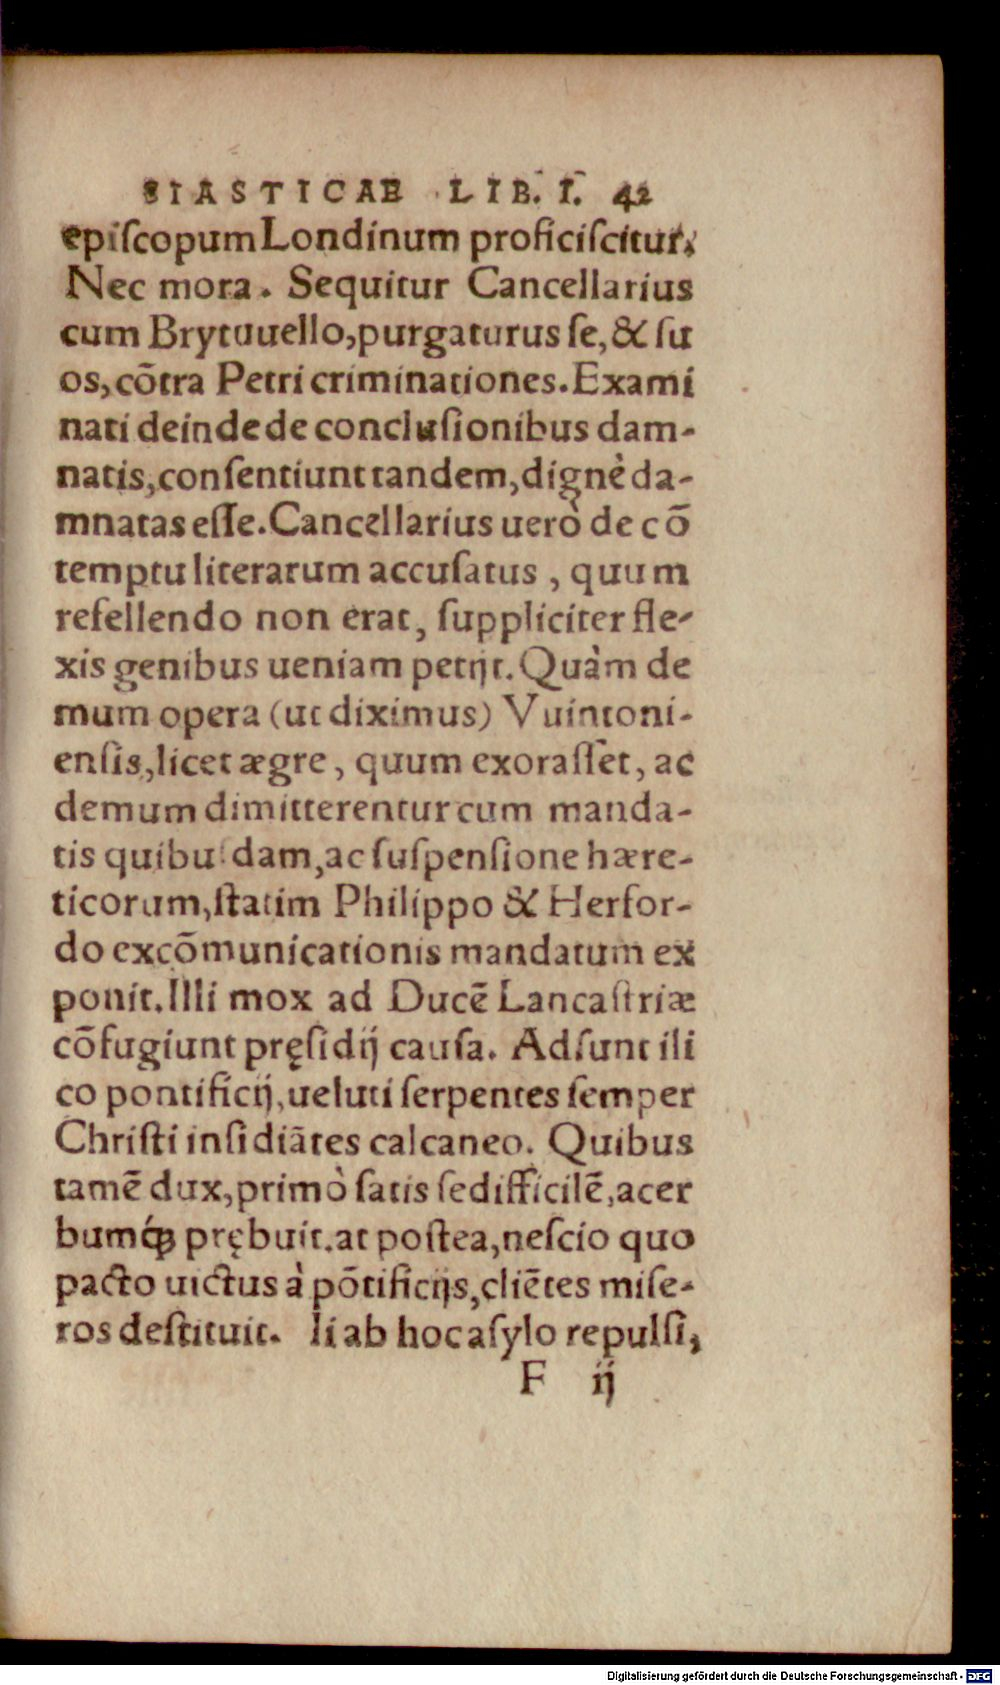 SIASTICAE LIB. I. 42
episcopum Londinum proficiscitur.
Nec mora. Sequitur Cancellarius
cum Brytuuello, purgaturus se, & su
os, cōtra Petri criminationes. Exami
nati deinde de conclusionibus dam-
natis, consentiunt tandem, dignè da-
mnatas esse. Cancellarius uerò de cō
temptu literarum accusatus, quum
refellendo non erat, suppliciter fle-
xis genibus ueniam petijt. Quàm de
mum opera (ut diximus) Vuintoni-
ensis, licet ægre, quum exorasset, ac
demum dimitterentur cum manda-
tis quibusdam, ac suspensione hære-
ticorum, statim Philippo & Herfor-
do excōmunicationis mandatum ex
ponit. Illi mox ad Ducē Lancastriæ
cōfugiunt pręsidij causa. Adsunt ili
co pontificij, ueluti serpentes semper
Christi insidiātes calcaneo. Quibus
tamē dux, primò satis se difficilē, acer
bumq́ꝫ prębuit. at postea, nescio quo
pacto uictus à pōtificijs, cliētes mise-
ros destituit. Ii ab hoc asylo repulsi,
F ij
Digitalisierung gefördert durch die Deutsche Forschungsgemeinschaft - DFG